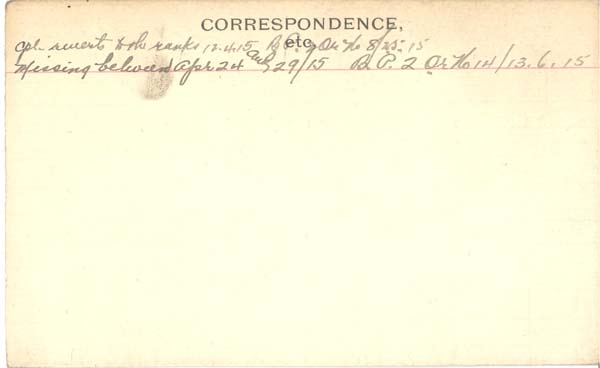 CORRESPONDENCE,
etc.
Cpl reverts to the ranks 12.4.15 B.P. 2 Or. No 8/25.15
Missing between Apr 24 and 29/15 B.P. 2 Or. No 14/13.6.15